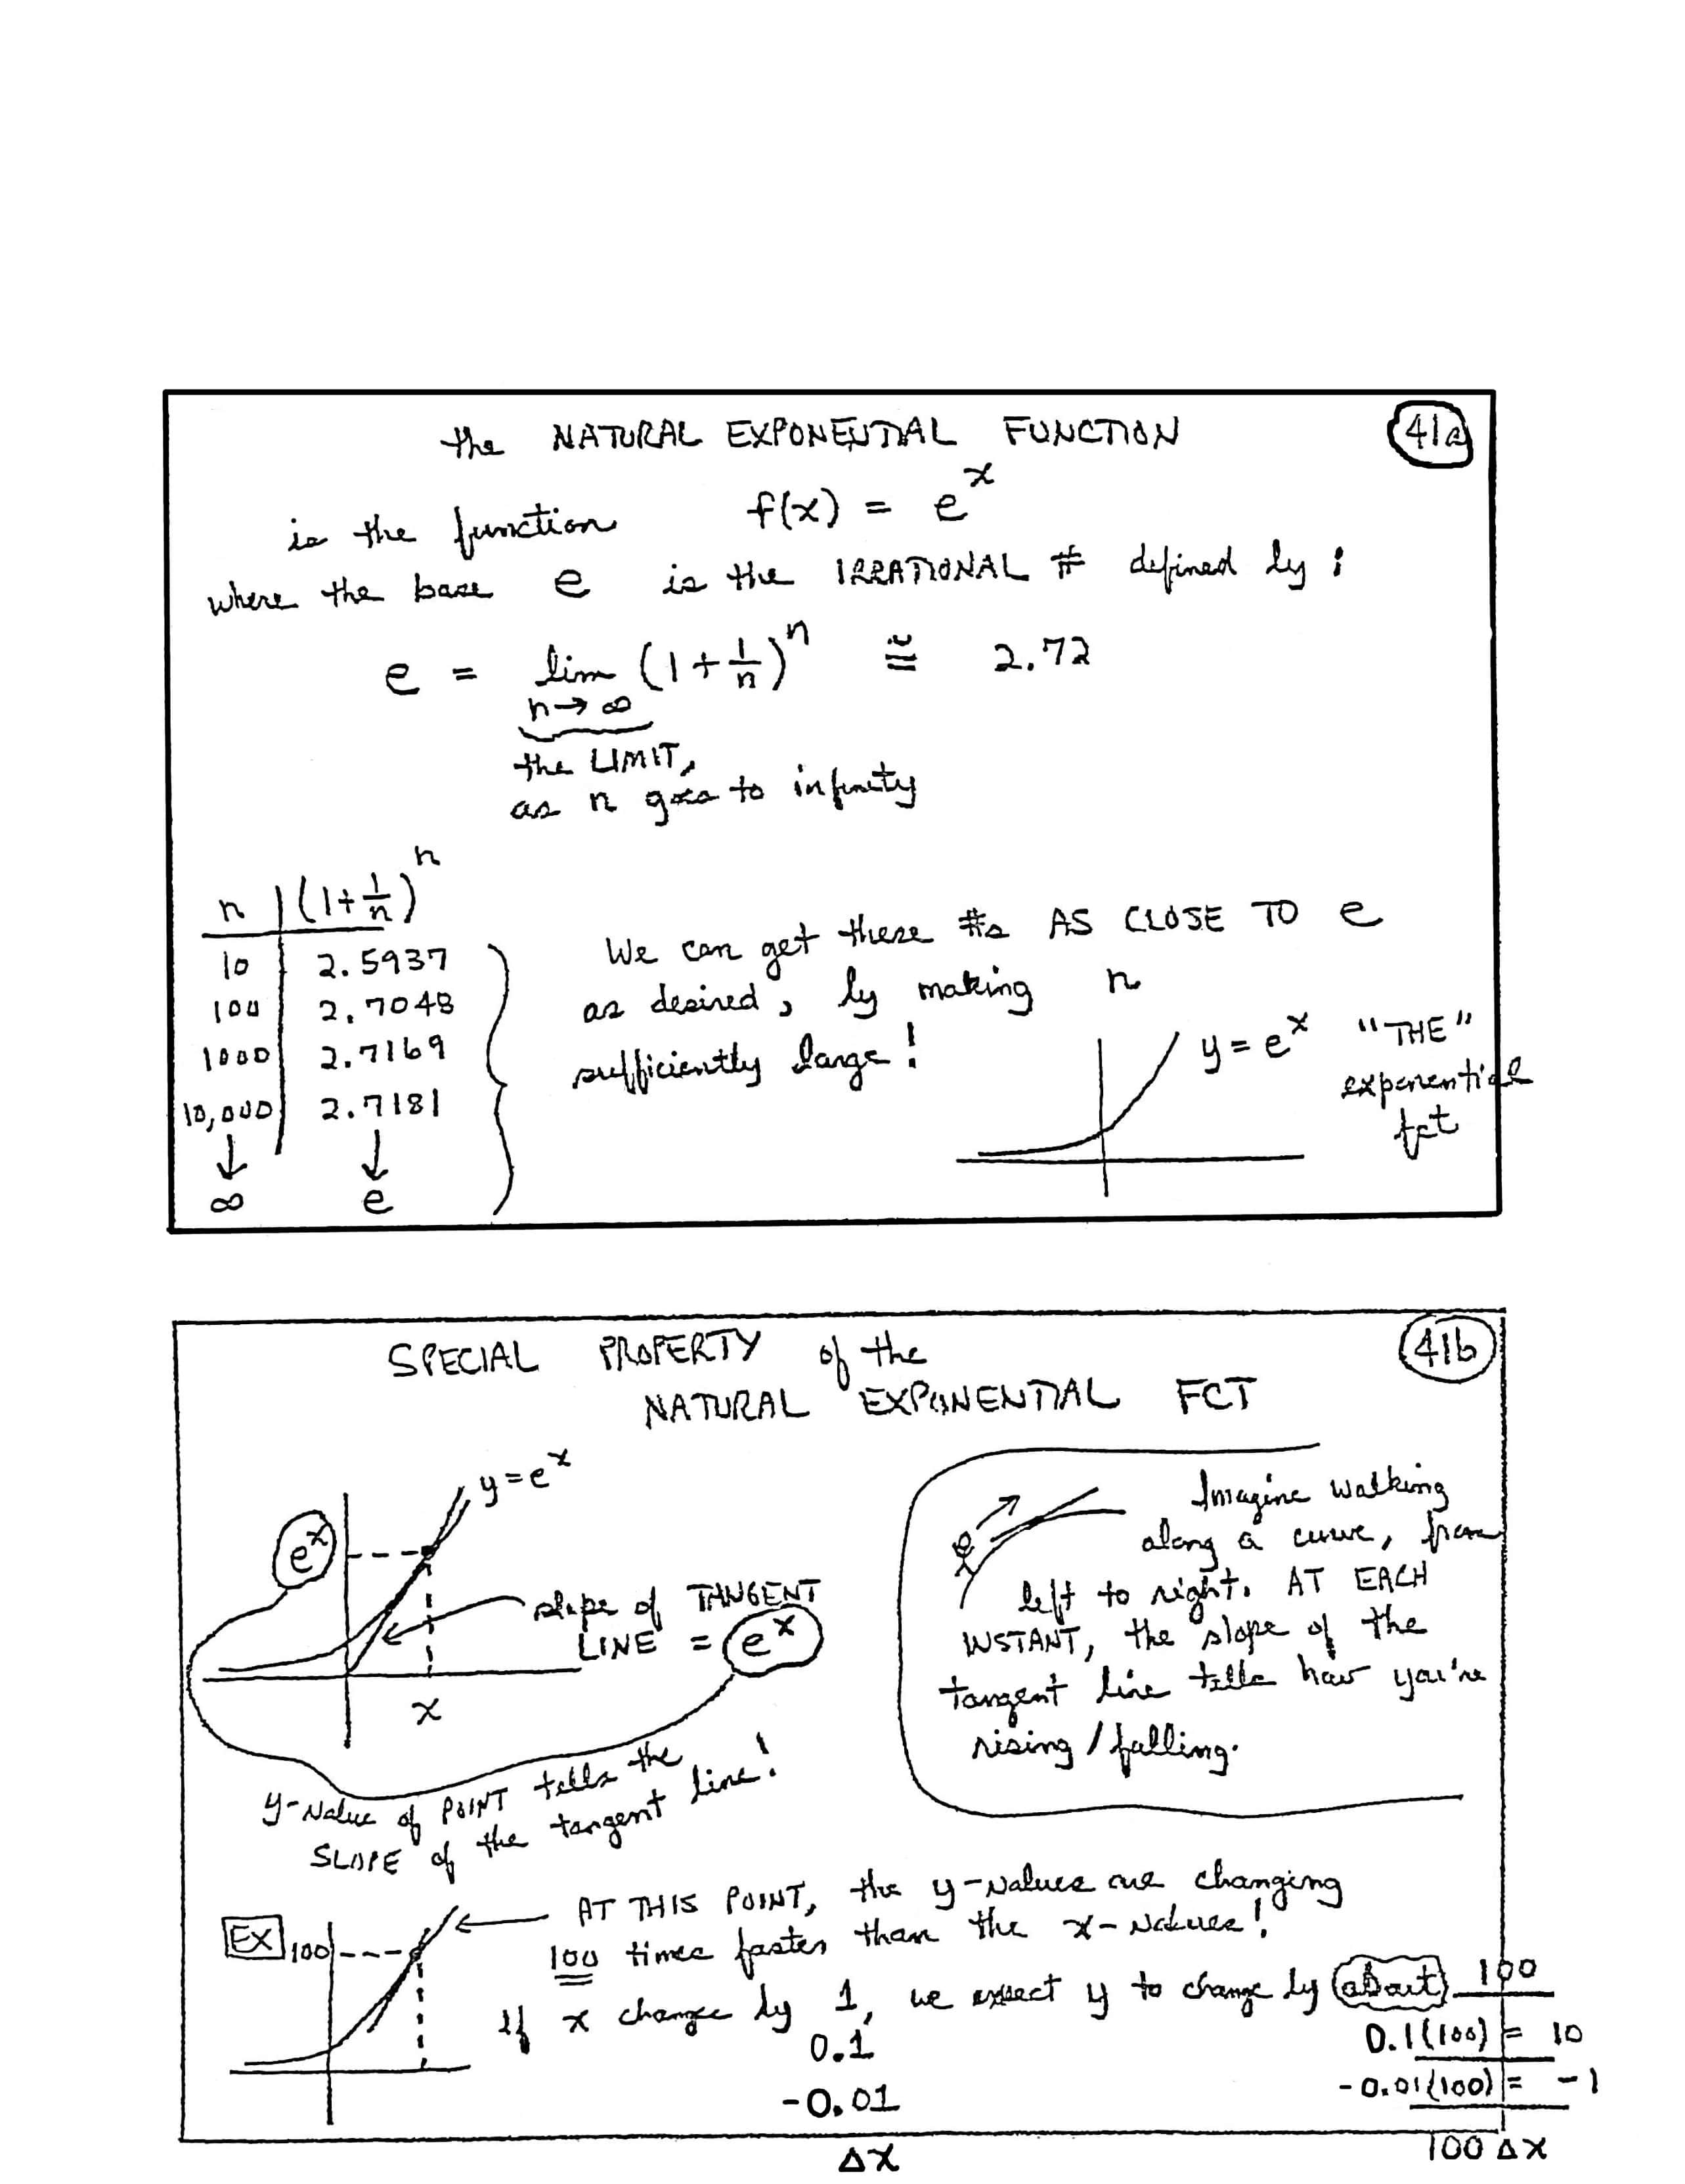 the NATURAL EXPONENTIAL FUNCTION
41a
is the function f(x) = e^x
where the base e is the IRRATIONAL # defined by:
e = lim (1 + 1/n)^n ≅ 2.72
n→∞
the LIMIT,
as n goes to infinity
n | (1 + 1/n)^n
10 | 2.5937
100 | 2.7048
1000 | 2.7169
10,000 | 2.7181
↓ ↓
∞ e
We can get these #s AS CLOSE TO e
as desired, by making n
sufficiently large!
y = e^x
"THE"
exponential
fct
SPECIAL PROPERTY of the
NATURAL EXPONENTIAL FCT
41b
y = e^x
e^x
slope of TANGENT
LINE = e^x
x
y-value of POINT tells the
SLOPE of the tangent line!
Imagine walking
along a curve, from
left to right. AT EACH
INSTANT, the slope of the
tangent line tells how you're
rising / falling.
EX
100
AT THIS POINT, the y-values are changing
100 times faster than the x-values!
If x change by 1, we expect y to change by about 100
0.1 0.1(100) = 10
-0.01 -0.01(100) = -1
Δx 100 Δx